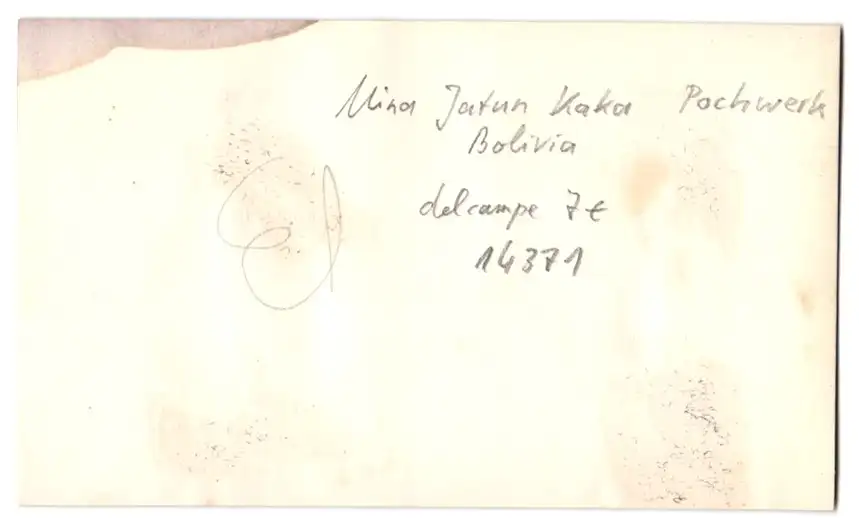 Mina Jatun Kaka Pochwerk
Bolivia
delcampe 7€
14371